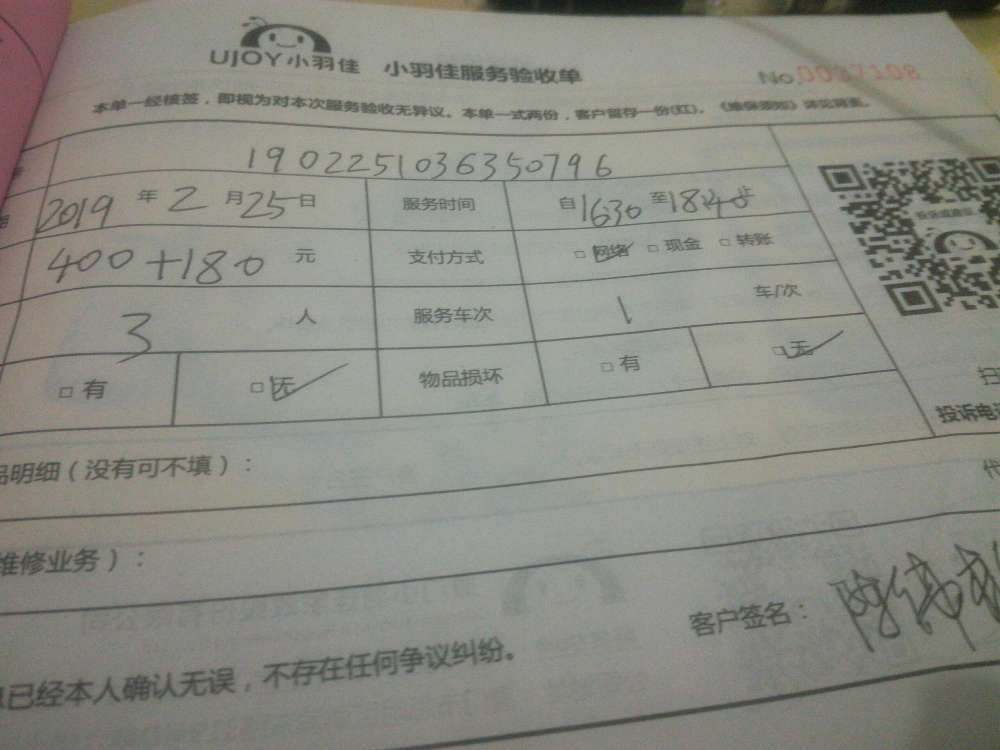 UJOY小羽佳 小羽佳服务验收单 No.0037108
本单一经核签，即视为对本次服务验收无异议。本单一式两份，客户留存一份(红)。《维保须知》详见背面。
1902251036350796
2019年2月25日 服务时间 自16:30至18:40止
400+180 元 支付方式 □网络 □现金 □转账
3 人 服务车次 1 车/次
□有 □无 物品损坏 □有 □无
品明细（没有可不填）：
维修业务）：
客户签名：
已经本人确认无误，不存在任何争议纠纷。
投诉电